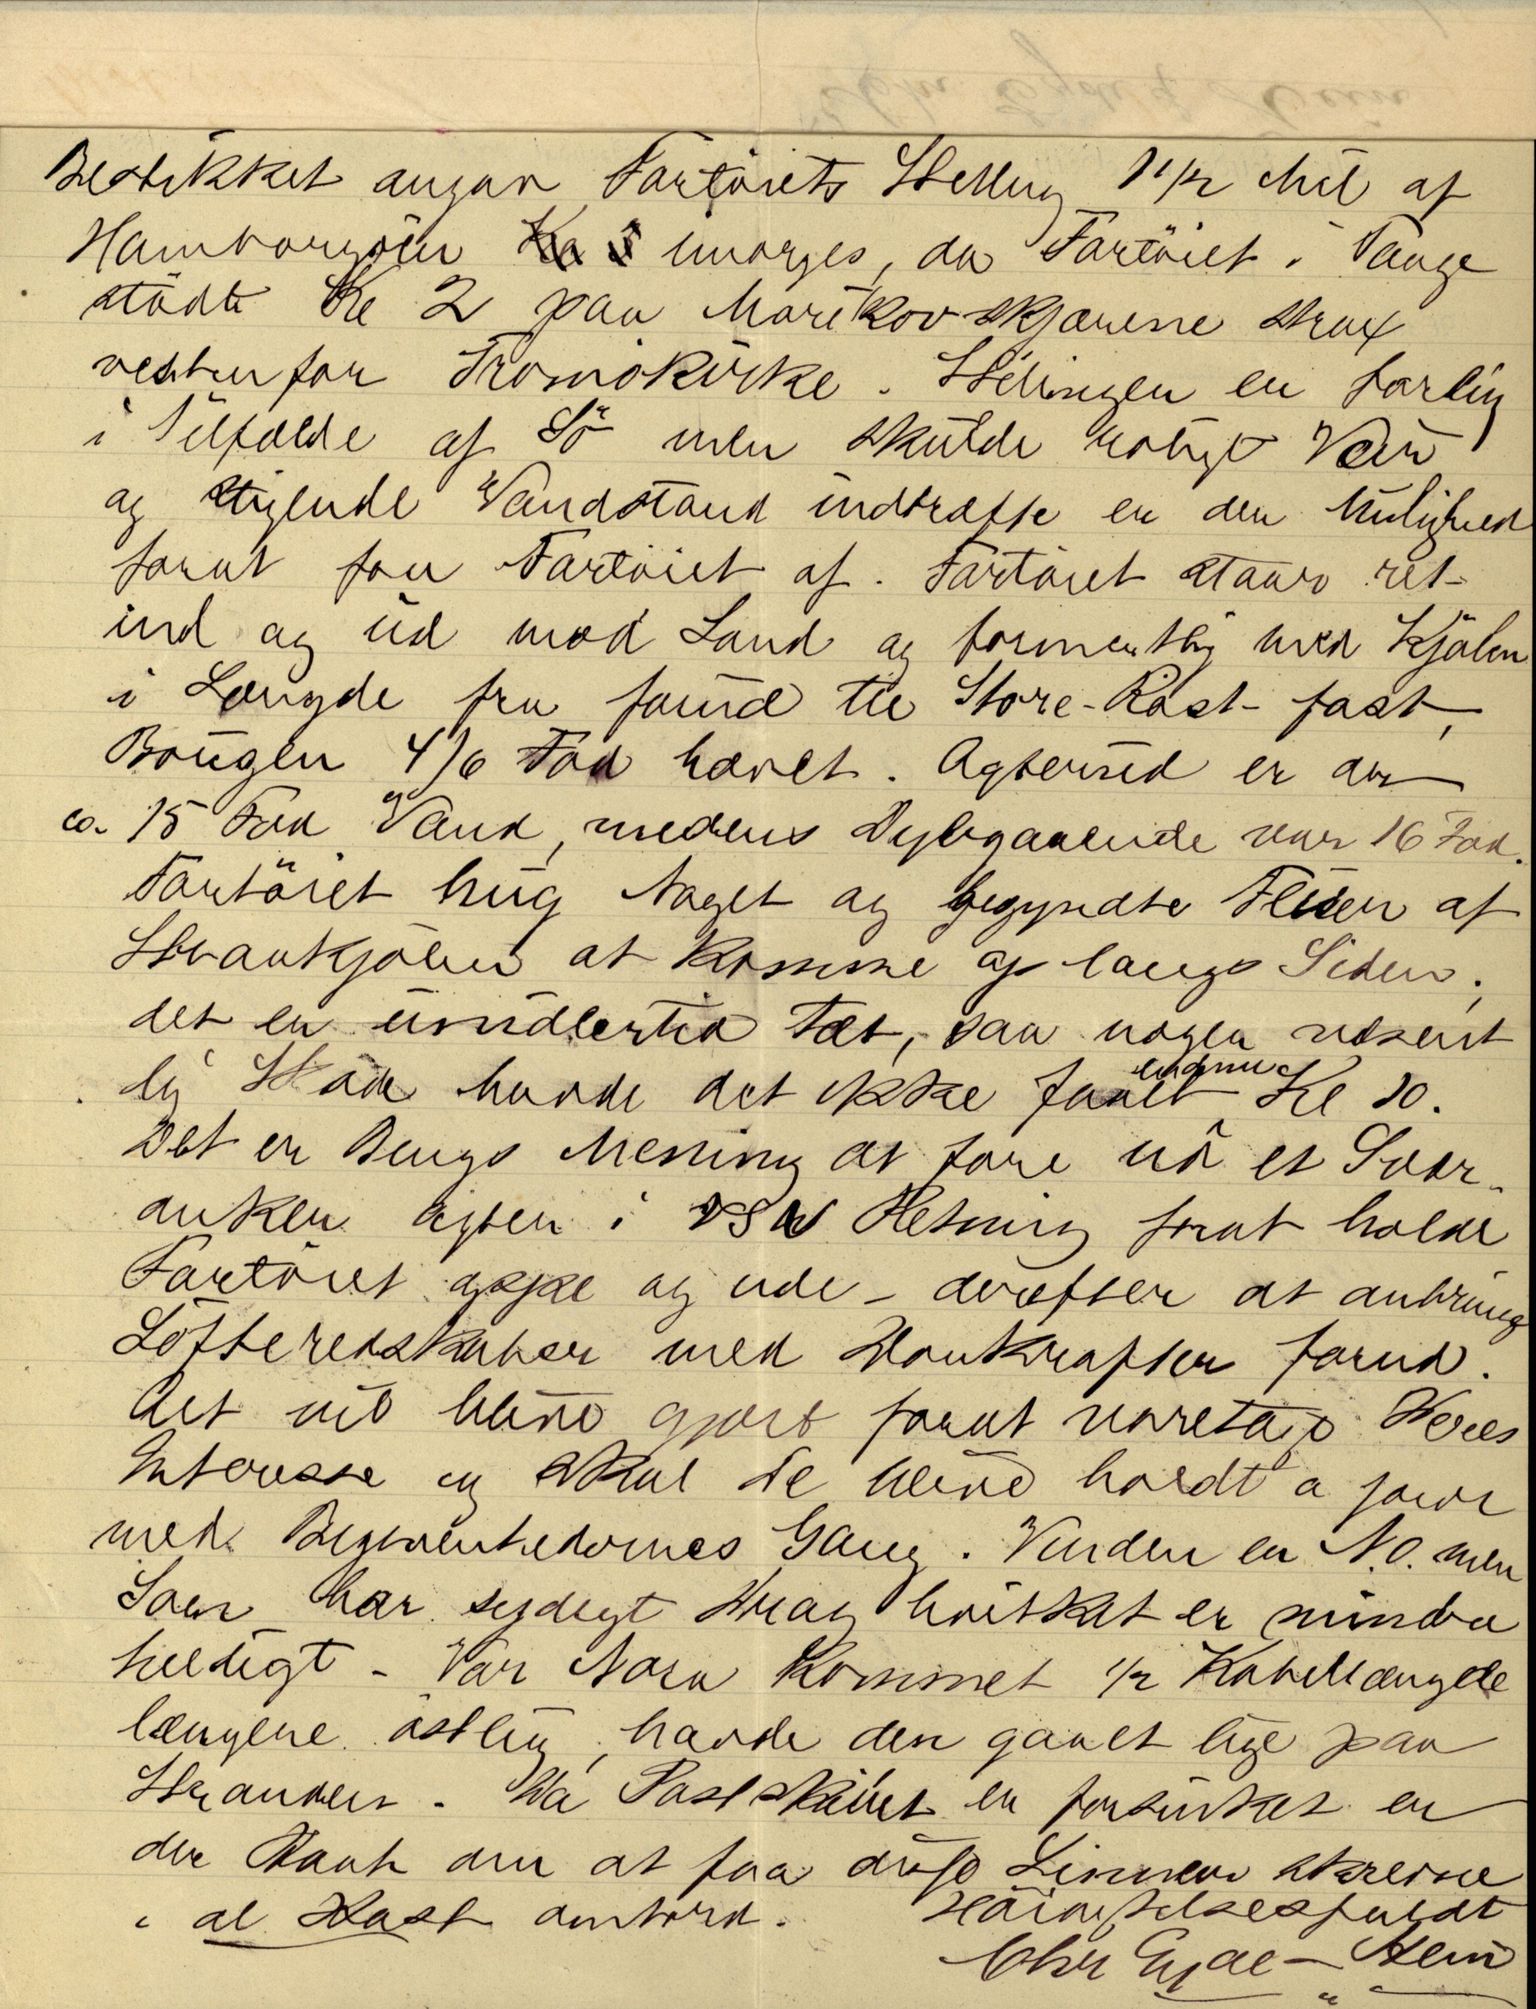 Bestikket angav Fartöiets Stilling 1 1/2 Mil af
Hamborgsöen imorges, da Fartöiet i Taage
stödte Kl 2 paa Mærikovskjærene strax
vestenfor Tromökirke. Stillingen er farlig
i Tilfælde af Sö men skulde roligt Veir
og stigende Vandstand indtræffe er der Mulighed
forat faa Fartöiet af. Fartöiet staar ret
ind og ud mod Land og formentlig med Kjölen
i Længde fra forud til Store-Röst fast,
Bougen 4/6 Fod hævet. Agterud er der
ca. 15 Fod Vand, medens Dybgaaende var 16 Fod.
Fartöiet hug Noget og begyndte Fliser af
Straakjölen at komme op langs Siden;
det er imidlertid tæt, saa nogen væsent
lig Skade havde det ikke faaet endnu Kl 10.
Det er Bergs Mening at före ud et Svær-
anker agter i VSW Retning forat holde
Fartöiet oppe og ude - derefter at anbringe
Löfteredskaber med Donkrafter forud.
Alt vil blive gjort forat varetage Deres
Interesse og skal De blive holdt a jour
med Begivenhedernes Gang. Vinden er N.O. men
Söen har sydligt Drag hvilket er mindre
heldigt - Var Nora kommet 1/2 Kabellængde
længere östlig, havde den gaaet lige paa
Stranden. Da Postskibet er forsinket er
der Haab om at faa disse Linier skrevne
i al Hast ombord. Höiagtelsesfuldt
Chr Eyde - Stem